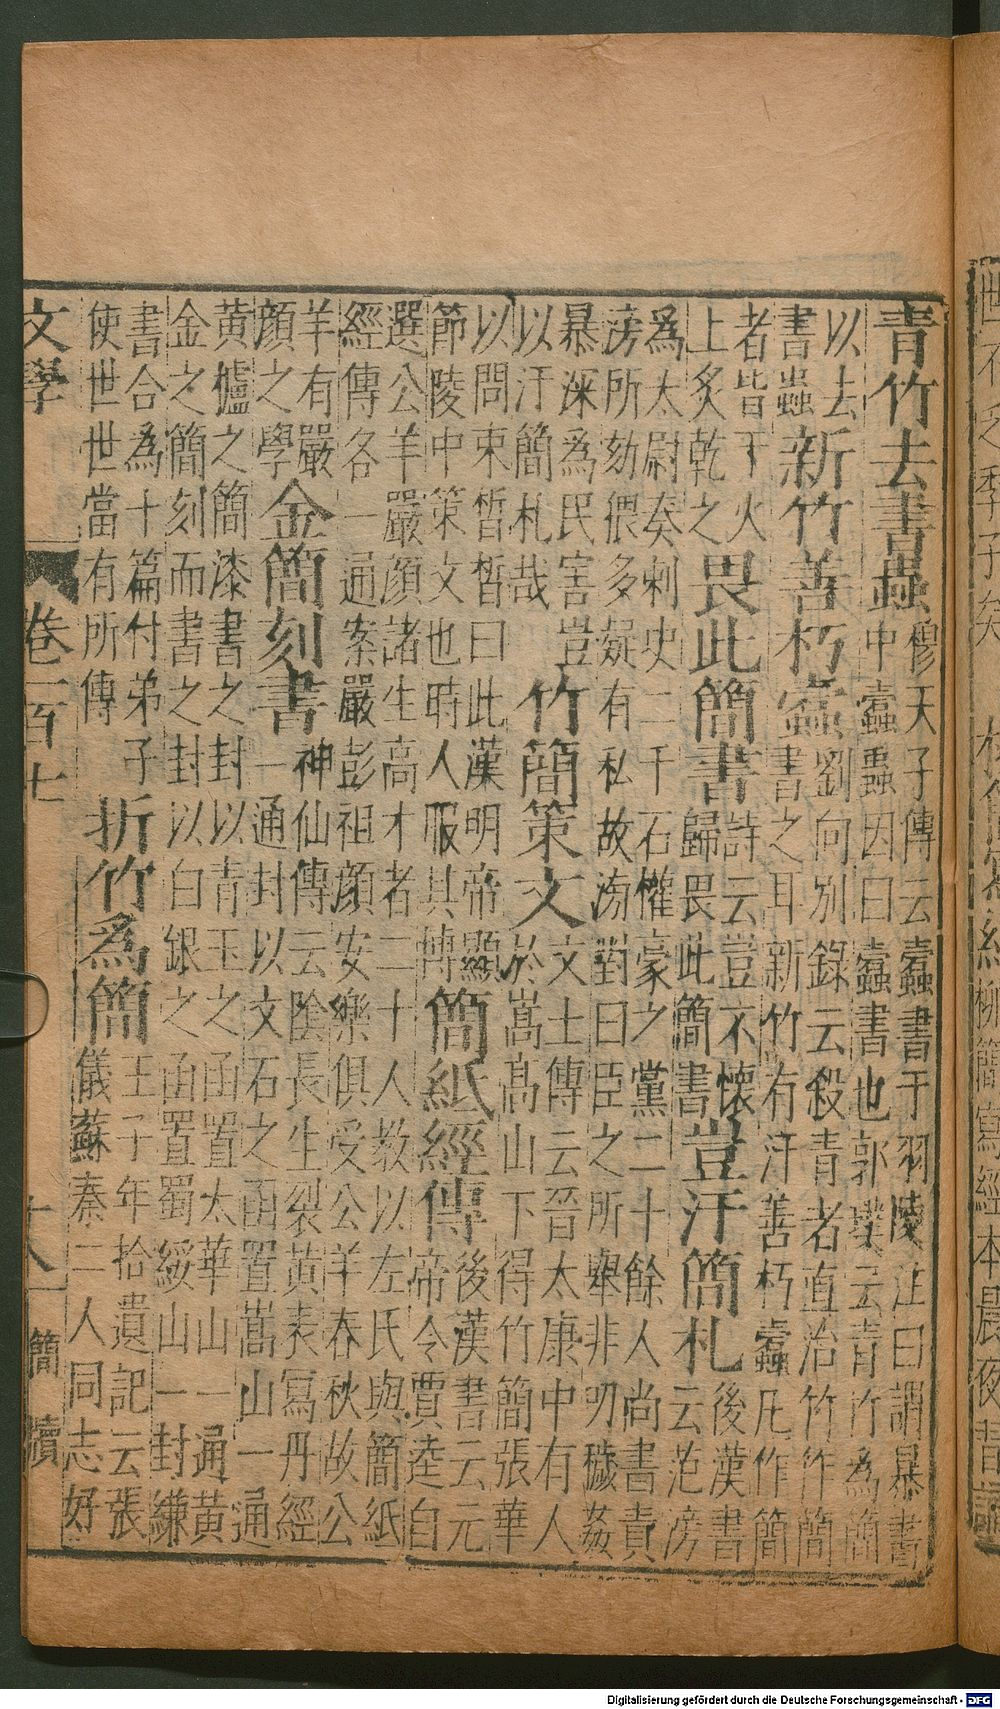 青竹去書蟲
穆天子傳云蠹書于羽陵注曰謂暴書
中蠹蟲因曰蠹書也郭璞云青竹為簡
以去
書蟲
新竹善朽蠹
劉向別錄云殺青者直治竹作簡
書之耳新竹有汗善朽蠹凡作簡
者皆下火
上炙乾之
畏此簡書
詩云豈不懷
歸畏此簡書
豈汙簡札
後漢書
云范滂
為太尉奏刺史二千石權豪之黨二十餘人尚書責
滂所劾猥多疑有私故滂對曰臣之所舉非叨穢姦
暴深為民害豈
以汙簡札哉
竹簡策文
文士傳云晉太康中有人
於嵩高山下得竹簡張華
以問束皙皙曰此漢明帝顯
節陵中策文也時人服其博
簡紙經傳
後漢書云元
帝令賈逵自
選公羊嚴顏諸生高才者二十人教以左氏與簡紙
經傳各一通案嚴彭祖顏安樂俱受公羊春秋故公
羊有嚴
顏之學
金簡刻書
神仙傳云陰長生裂黃表寫丹經
一通封以文石之函置嵩山一通
黃櫨之簡漆書之封以青玉之函置太華山一通黃
金之簡刻而書之封以白銀之函置蜀綏山一封縑
書合為十篇付弟子
使世世當有所傳
折竹為簡
王子年拾遺記云張
儀蘇秦二人同志好
文學 卷一百七 十八 簡牘
Digitalisierung gefördert durch die Deutsche Forschungsgemeinschaft - DFG